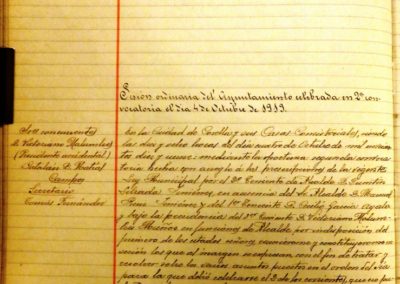 Sesión ordinaria del Ayuntamiento celebrada en 2ª con-
vocatoria el dia 4 de Octubre de 1919.
Sres concurrentes
D. Victoriano
(Presidente accidental)
Campo
Secretario
Tomás Fernández
En la Ciudad de y sus Casas Consistoriales, siendo
las diez y ocho horas del dia cuatro de Octubre de mil novecien
tos diez y nueve mediante la oportuna segunda convoca
toria hecha con arreglo a las prescripciones de la vigente
Ley Municipal por el 2º Teniente de Alcalde D.
Jiménez, en ausencia del Sr. Alcalde D. Manuel
Ruiz Jiménez y del 1er Teniente D. García
y bajo la presidencia del 3er Teniente D. Victoriano
en funciones de Alcalde por indisposición del
primero de los citados señores,
sesión los que al margen se expresan con el fin de tratar y
resolver sobre los varios asuntos puestos en el orden del dia
para la que debió celebrarse el 2 de los corrientes, que no